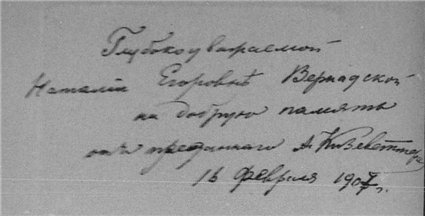 Глубокоуважаемой
Наталіи Егоровнѣ Вернадской
на добрую память
отъ преданнаго А. Кизеветтера
16 февраля 1907 г.